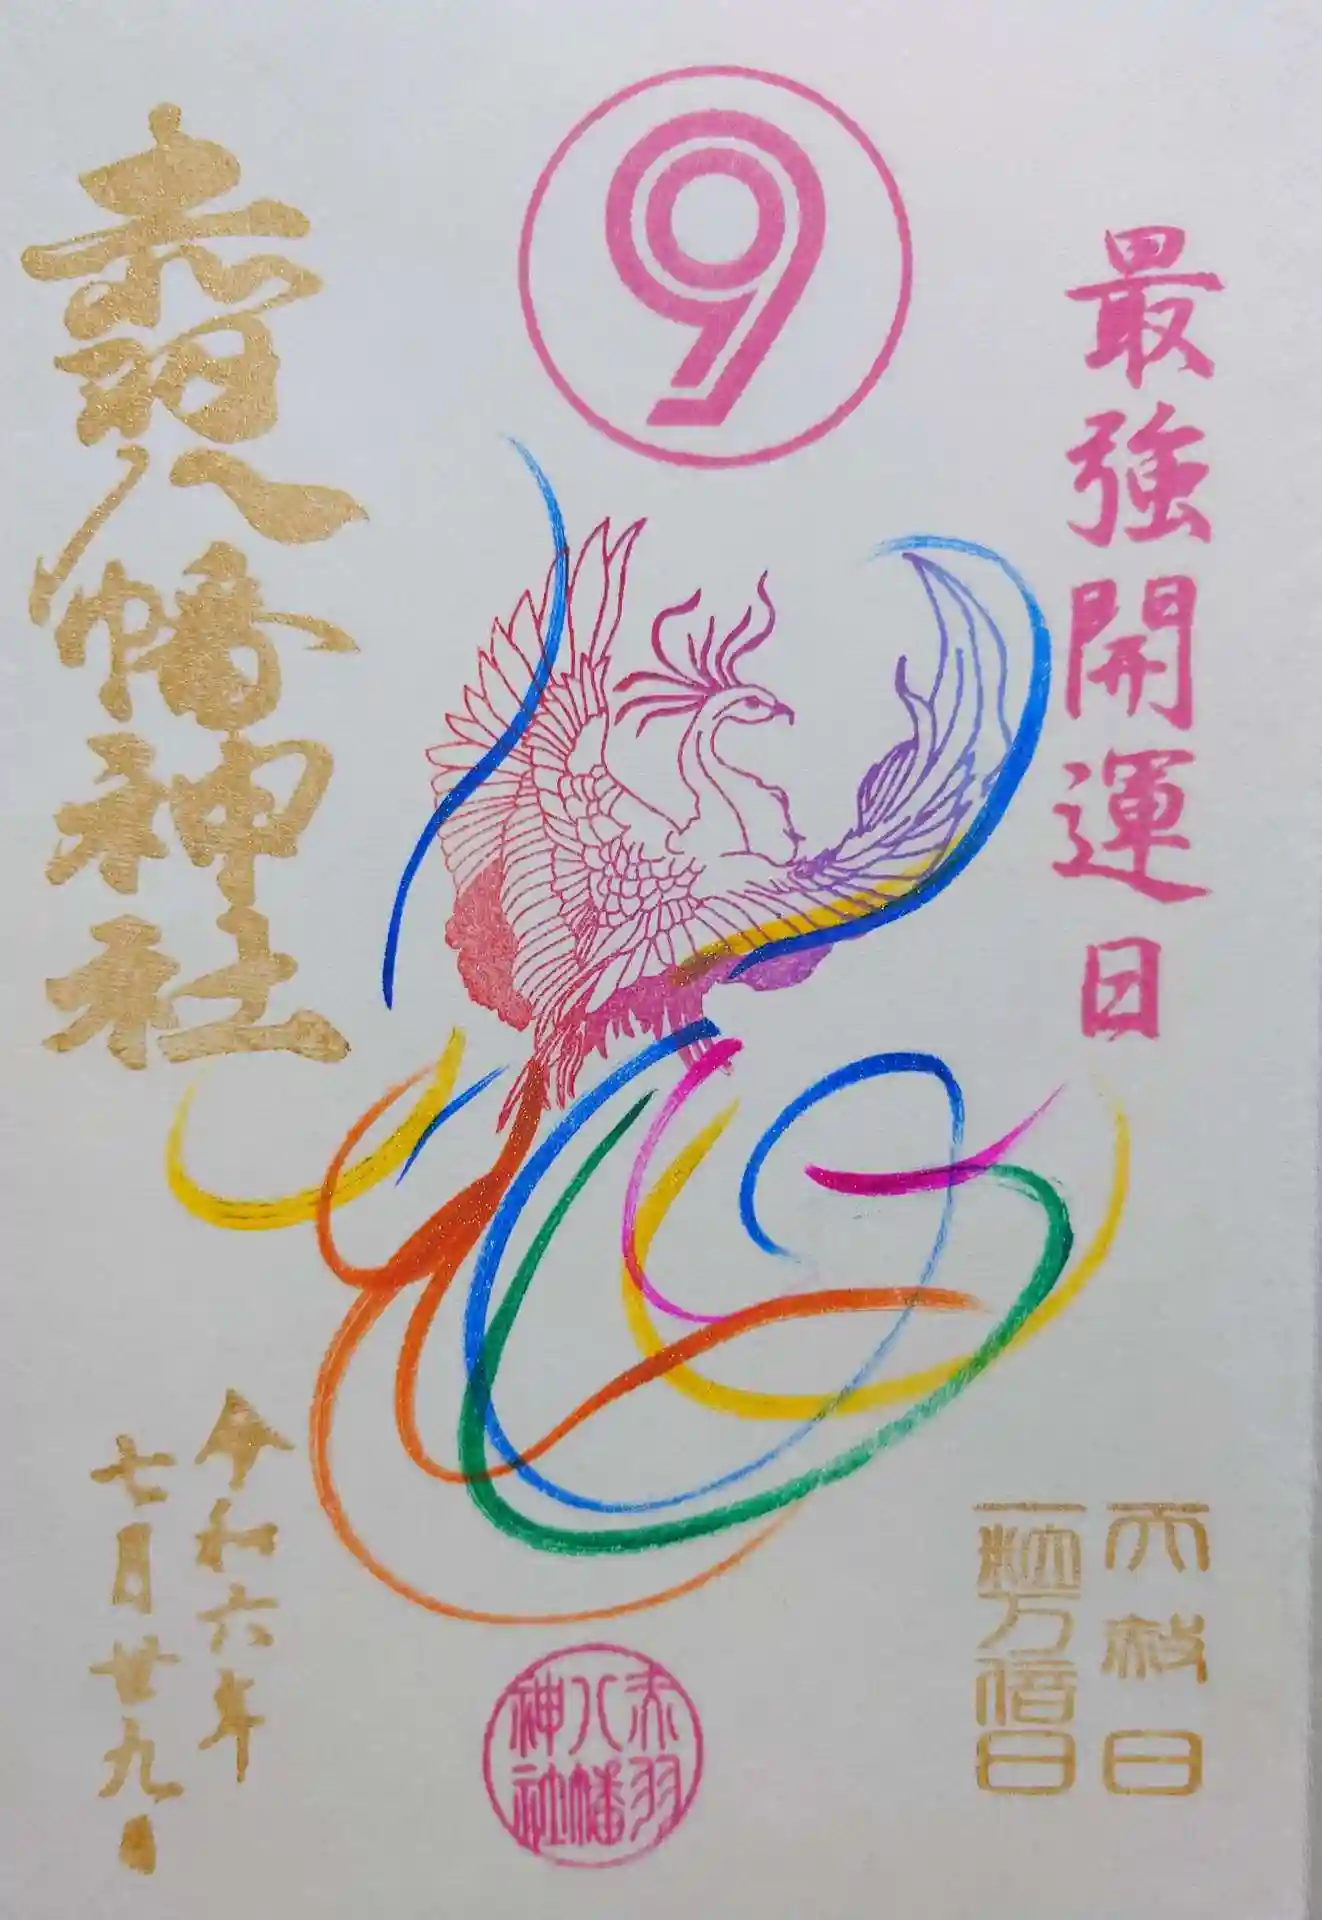 9
最強開運日
天赦日
一粒万倍日
赤羽八幡神社
令和六年
七月廿九日
赤羽
八幡
神社